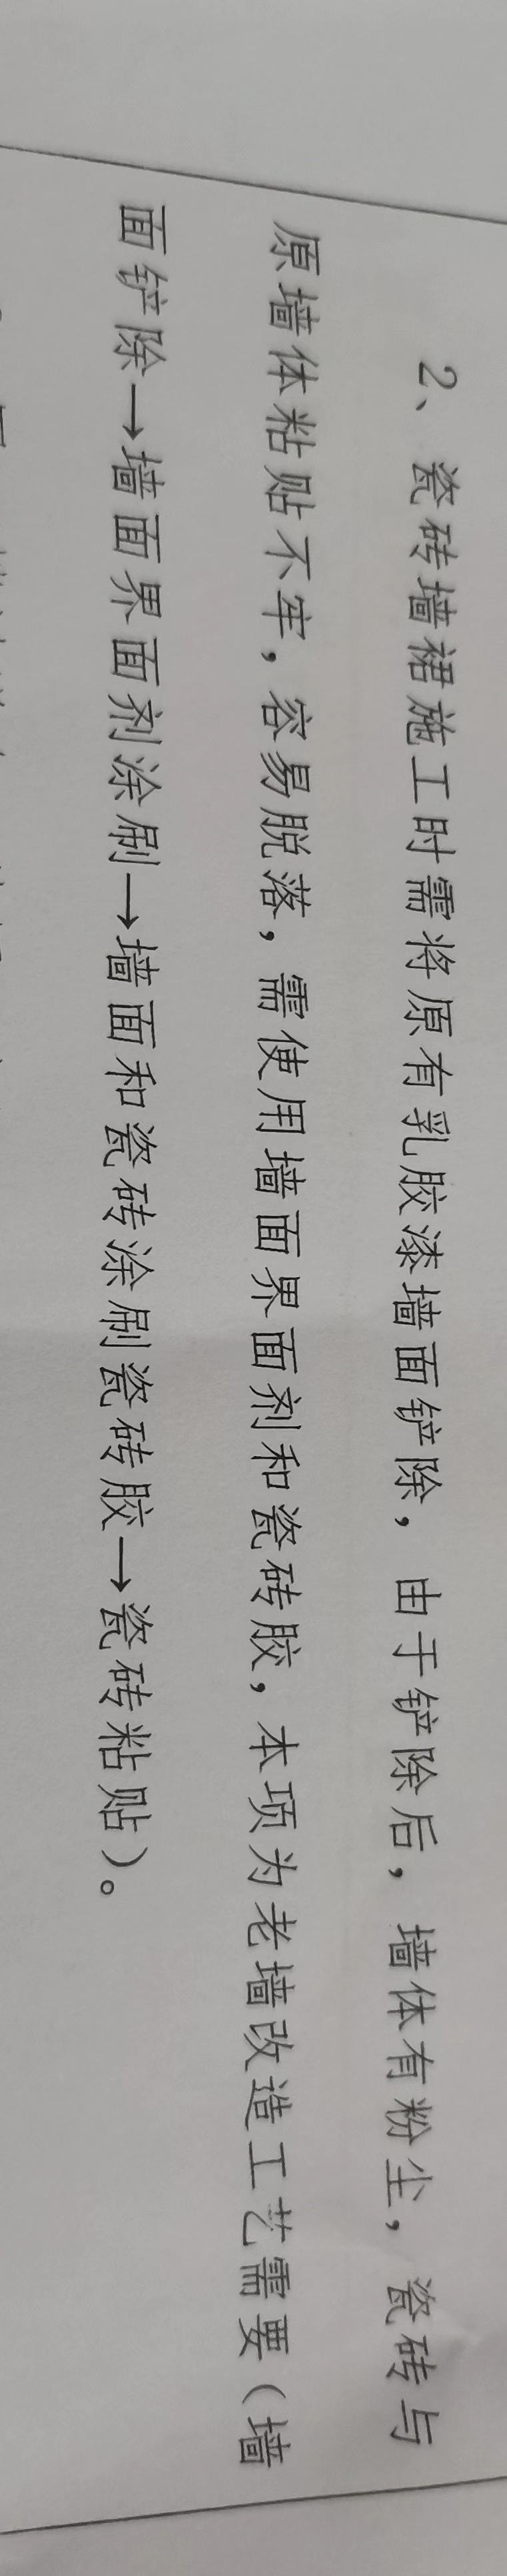 2、瓷砖墙裙施工时需将原有乳胶漆墙面铲除，由于铲除后，墙体有粉尘，瓷砖与
原墙体粘贴不牢，容易脱落，需使用墙面界面剂和瓷砖胶，本项为老墙改造工艺需要（墙
面铲除→墙面界面剂涂刷→墙面和瓷砖涂刷瓷砖胶→瓷砖粘贴）。